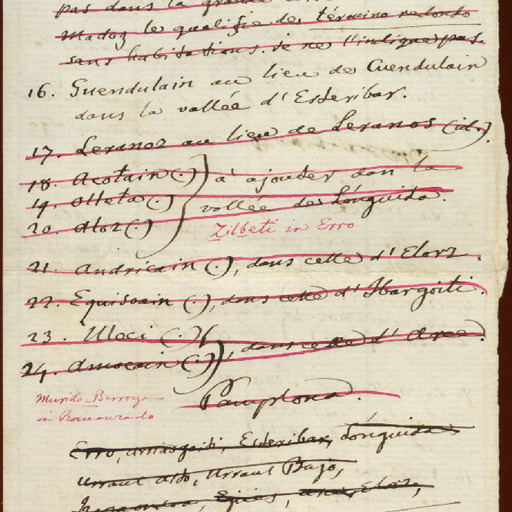 pas dans la grande
Madoz le qualifie de término redondo
sans habitations. je ne l'indique pas
16. Guendulain au lieu de Cuendulain
dans la vallée d'Esteribar.
17. Leranoz au lieu de Leranos (id.).
18. Acotain (.)
19. Olleta (.)
20. Aloz (.)
à ajouter dans la
vallée de Lónguida.
Zilbeti in Erro
21. Andricain (.), dans celle d'Elorz.
22. Equisoain (.), dans celle d'Ibargoiti.
23. Uloci (.)
24. Amocain (.)
, dans celle d'Arce.
Murillo Berroya
in Romanzado
Pamplona.
Erro, Esteribar, Lónguida
Urraul Alto, Urraul Bajo,
Elorz,